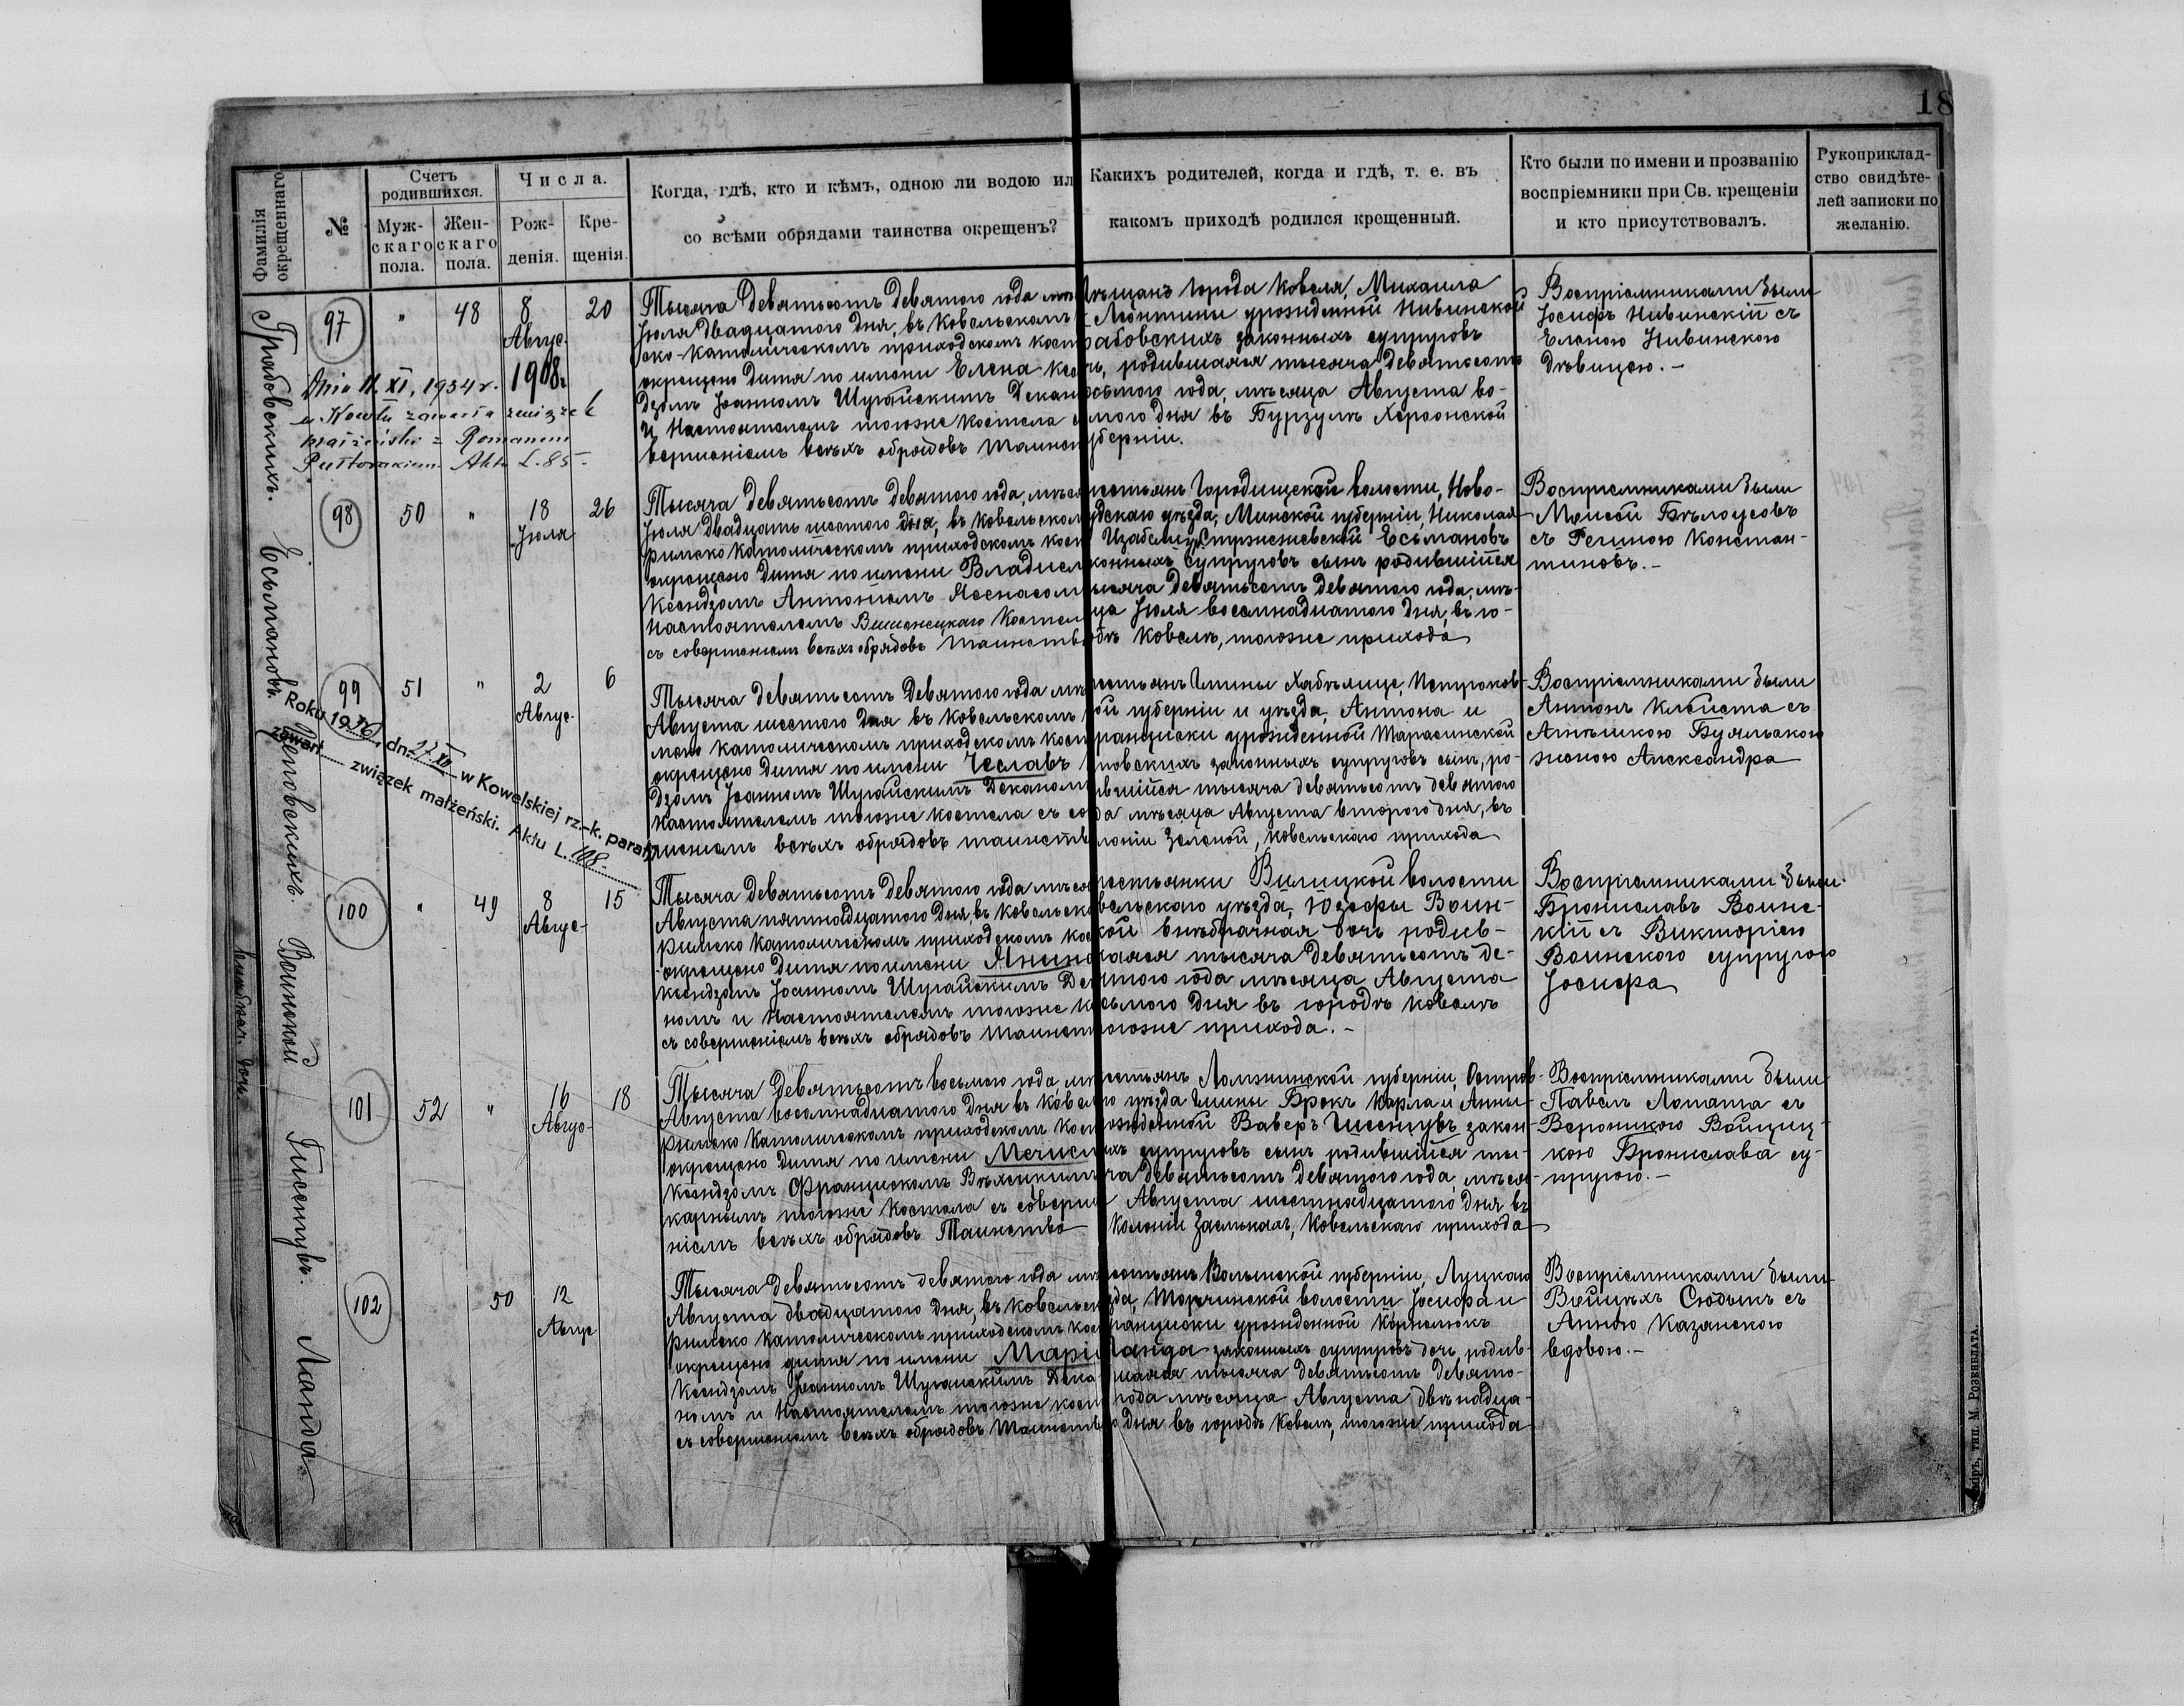 18
Фамилія
окрещеннаго
№
Счетъ
родившихся.
Муж-
скаго
пола.
Жен-
скаго
пола.
Числа.
Рож-
денія.
Кре-
щенія.
Когда, гдѣ, кто и кѣмъ, одною ли водою ил
со всѣми обрядами таинства окрещенъ?
Какихъ родителей, когда и гдѣ, т. е. въ
какомъ приходѣ родился крещенный.
Кто были по имени и прозванію
воспріемники при Св. крещеніи
и кто присутствовалъ.
Рукоприклад-
ство свидѣте-
лей записки по
желанію.
Грабовскихъ.
97
"
48
8
Авгус.
1908г
20
Dnia 11. XI. 1934 r.
w Kowlu zawarła związek
małżeński z Romanem
Akt L. 85.
Тысяча девятьсотъ девятого года
Іюля двадцатого дня, въ Ковельскомъ
ско-католическомъ приходскомъ кост
окрещено дитя по имени Елена ксен
дзомъ Іоанномъ Шугайскимъ Декан
и Настоятелемъ тогоже костела
вершеніемъ всѣхъ обрядовъ таинст
ѣщанъ города Ковеля, Михаила
и Леонтины урожденной Нивинской
рабовскихъ законныхъ супруговъ
чь, родившаяся тысяча девятьсотъ
осьмого года, мѣсяца Августа во-
мого дня въ Бурзулѣ Херсонской
уберніи.
Воспріемниками были
Іосифъ Нивинскій съ
Еленою Нивинскою
дѣвицею.-
Есьмановъ.
98
50
"
18
Іюля
26
Тысяча девятьсотъ девятого года, мѣся
Іюля двадцать шестого дня, въ Ковельском
римско католическомъ приходскомъ кост
окрещено дитя по имени Владисл
Ксендзомъ Антоніемъ Яснасом
настоятелемъ Костел
съ совершеніемъ всѣхъ обрядовъ таинств
рестьянъ Городищской волости, Ново-
удскаго уѣзда, Минской губерніи, Николая
и Изабелы Стржижевской Есьмановъ
конныхъ супруговъ сынъ родившійся
ысяча девятьсотъ девятого года, мѣ-
ца Іюля восемнадцатого дня, въ го-
одѣ Ковелѣ, тогоже прихода
Воспріемниками были
Моисей Бѣлоусовъ
съ Региною Констан-
тиновъ.-
99
51
"
2
Авгус-
6
Roku 1926, dn. 27 XI w Kowelskiej rz.-k. parafji
zawart związek małżeński. Aktu L. 108.
Тысяча девятьсотъ девятого года мѣ
Августа шестого дня въ Ковельскомъ
мско католическомъ приходскомъ кост
окрещено дитя по имени Чеславъ
дзомъ Іоанномъ Шугайскимъ Деканом
настоятелемъ тогоже костела съ со
ршеніемъ всѣхъ обрядовъ таинств
рестьянъ гмины Хабѣлице, Петроков-
ой губерніи и уѣзда, Антона и
ранциски урожденной Тарасинской
повскихъ законныхъ супруговъ сынъ, ро-
ившійся тысяча девятьсотъ девятого
да мѣсяца Августа второго дня, въ
лоніи Зеленой, Ковельскаго прихода
Воспріемниками были
Антонъ Клейста съ
Анѣлькою Буяльскою
женою Александра
Воинской
внѣбрач. дочь
100
"
49
8
Авгус-
15
Тысяча девятьсотъ девятого года мѣся
Августа пятнадцатого дня, въ Ковельско
римско католическомъ приходскомъ кос
окрещено дитя по имени Янина
ксендзомъ Іоанномъ Шугайскимъ Де
номъ и Настоятелемъ тогоже к
съ совершеніемъ всѣхъ обрядовъ таинст
рестьянки Велицкой волости
вельскаго уѣзда, Юзефы Воин-
кой внѣбрачная дочь родив-
шаяся тысяча девятьсотъ де-
ятого года мѣсяца Августа
осьмого дня въ городѣ Ковелѣ
тогоже прихода.-
Воспріемниками были
Брониславъ Воинс-
кій съ Викторіею
Воинского супругою
Іосифа
Гисентувъ.
101
52
"
16
Авгус-
18
Тысяча девятьсотъ восьмого года, мѣ
Августа восемнадцатого дня въ Ковел
римско католическомъ приходскомъ кост
окрещено дитя по имени Мечисл
ксендзомъ Францискомъ
карнымъ тогоже костела съ соверше
ніемъ всѣхъ обрядовъ Таинства
рестьянъ Ломжинской губерніи, Остров-
го уѣзда гмины Брокъ Карла и Анны
рожденной Ваверъ Гисентувъ закон-
ыхъ супруговъ сынъ родившійся ты-
яча девятьсотъ девятого года, мѣся-
Августа шестнадцатого дня въ
Колоніи Засмыкахъ, Ковельскаго прихода
Воспріемниками были
Павелъ Лопата съ
Вероникою Войциц-
кою Бронислава су-
пругою.-
Ланда.
102
50
12
Авгус
Тысяча девятьсотъ девятого года мѣ
Августа двадцатого дня, въ Ковельск
римско католическомъ приходскомъ кос
окрещено дитя по имени Марі
Ксендзомъ Іоанномъ Шугайскимъ Дека-
номъ и Настоятелемъ тогоже кост
съ совершеніемъ всѣхъ обрядовъ Таинств
рестьянъ Волынской губерніи, Луцкаго
зда, Торчинской волости Іосифа и
ранциски урожденной Корнелюкъ
Ланда законныхъ супруговъ дочь родив-
шаяся тысяча девятьсотъ девято-
года мѣсяца Августа двѣнадца-
о дня въ городѣ Ковелѣ, тогоже прихода
Воспріемниками были
Войцѣхъ Сюдымъ съ
Анною Казанскою
вдовою.-
тип. М. Розенблата.